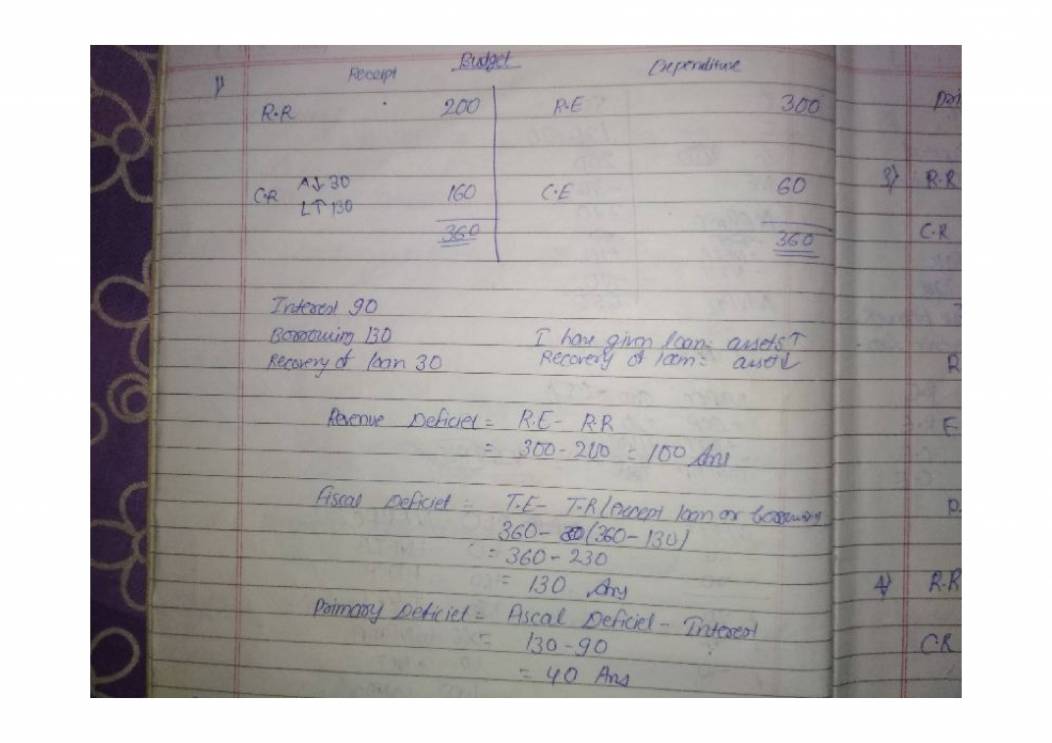 Budget
1) Receipt Expenditure
R.R 200 R.E 300
C.R A↓ 30 160 C.E 60
L↑ 130
360 360
Interest 90
Borrowing 130 I have given loan = assets↑
Recovery of loan 30 Recovery of loan = asset↓
Revenue Deficiel = R.E - R.R
= 300 - 200 = 100 Ans
Fiscal Deficiel = T.E - T.R (Except loan or borrowing
360 - (360 - 130)
= 360 - 230
= 130 Ans
Primary Deficiel = Fiscal Deficiel - Interest
= 130 - 90
= 40 Ans
3) R.R
C.R
R
E
4) R.R
C.R